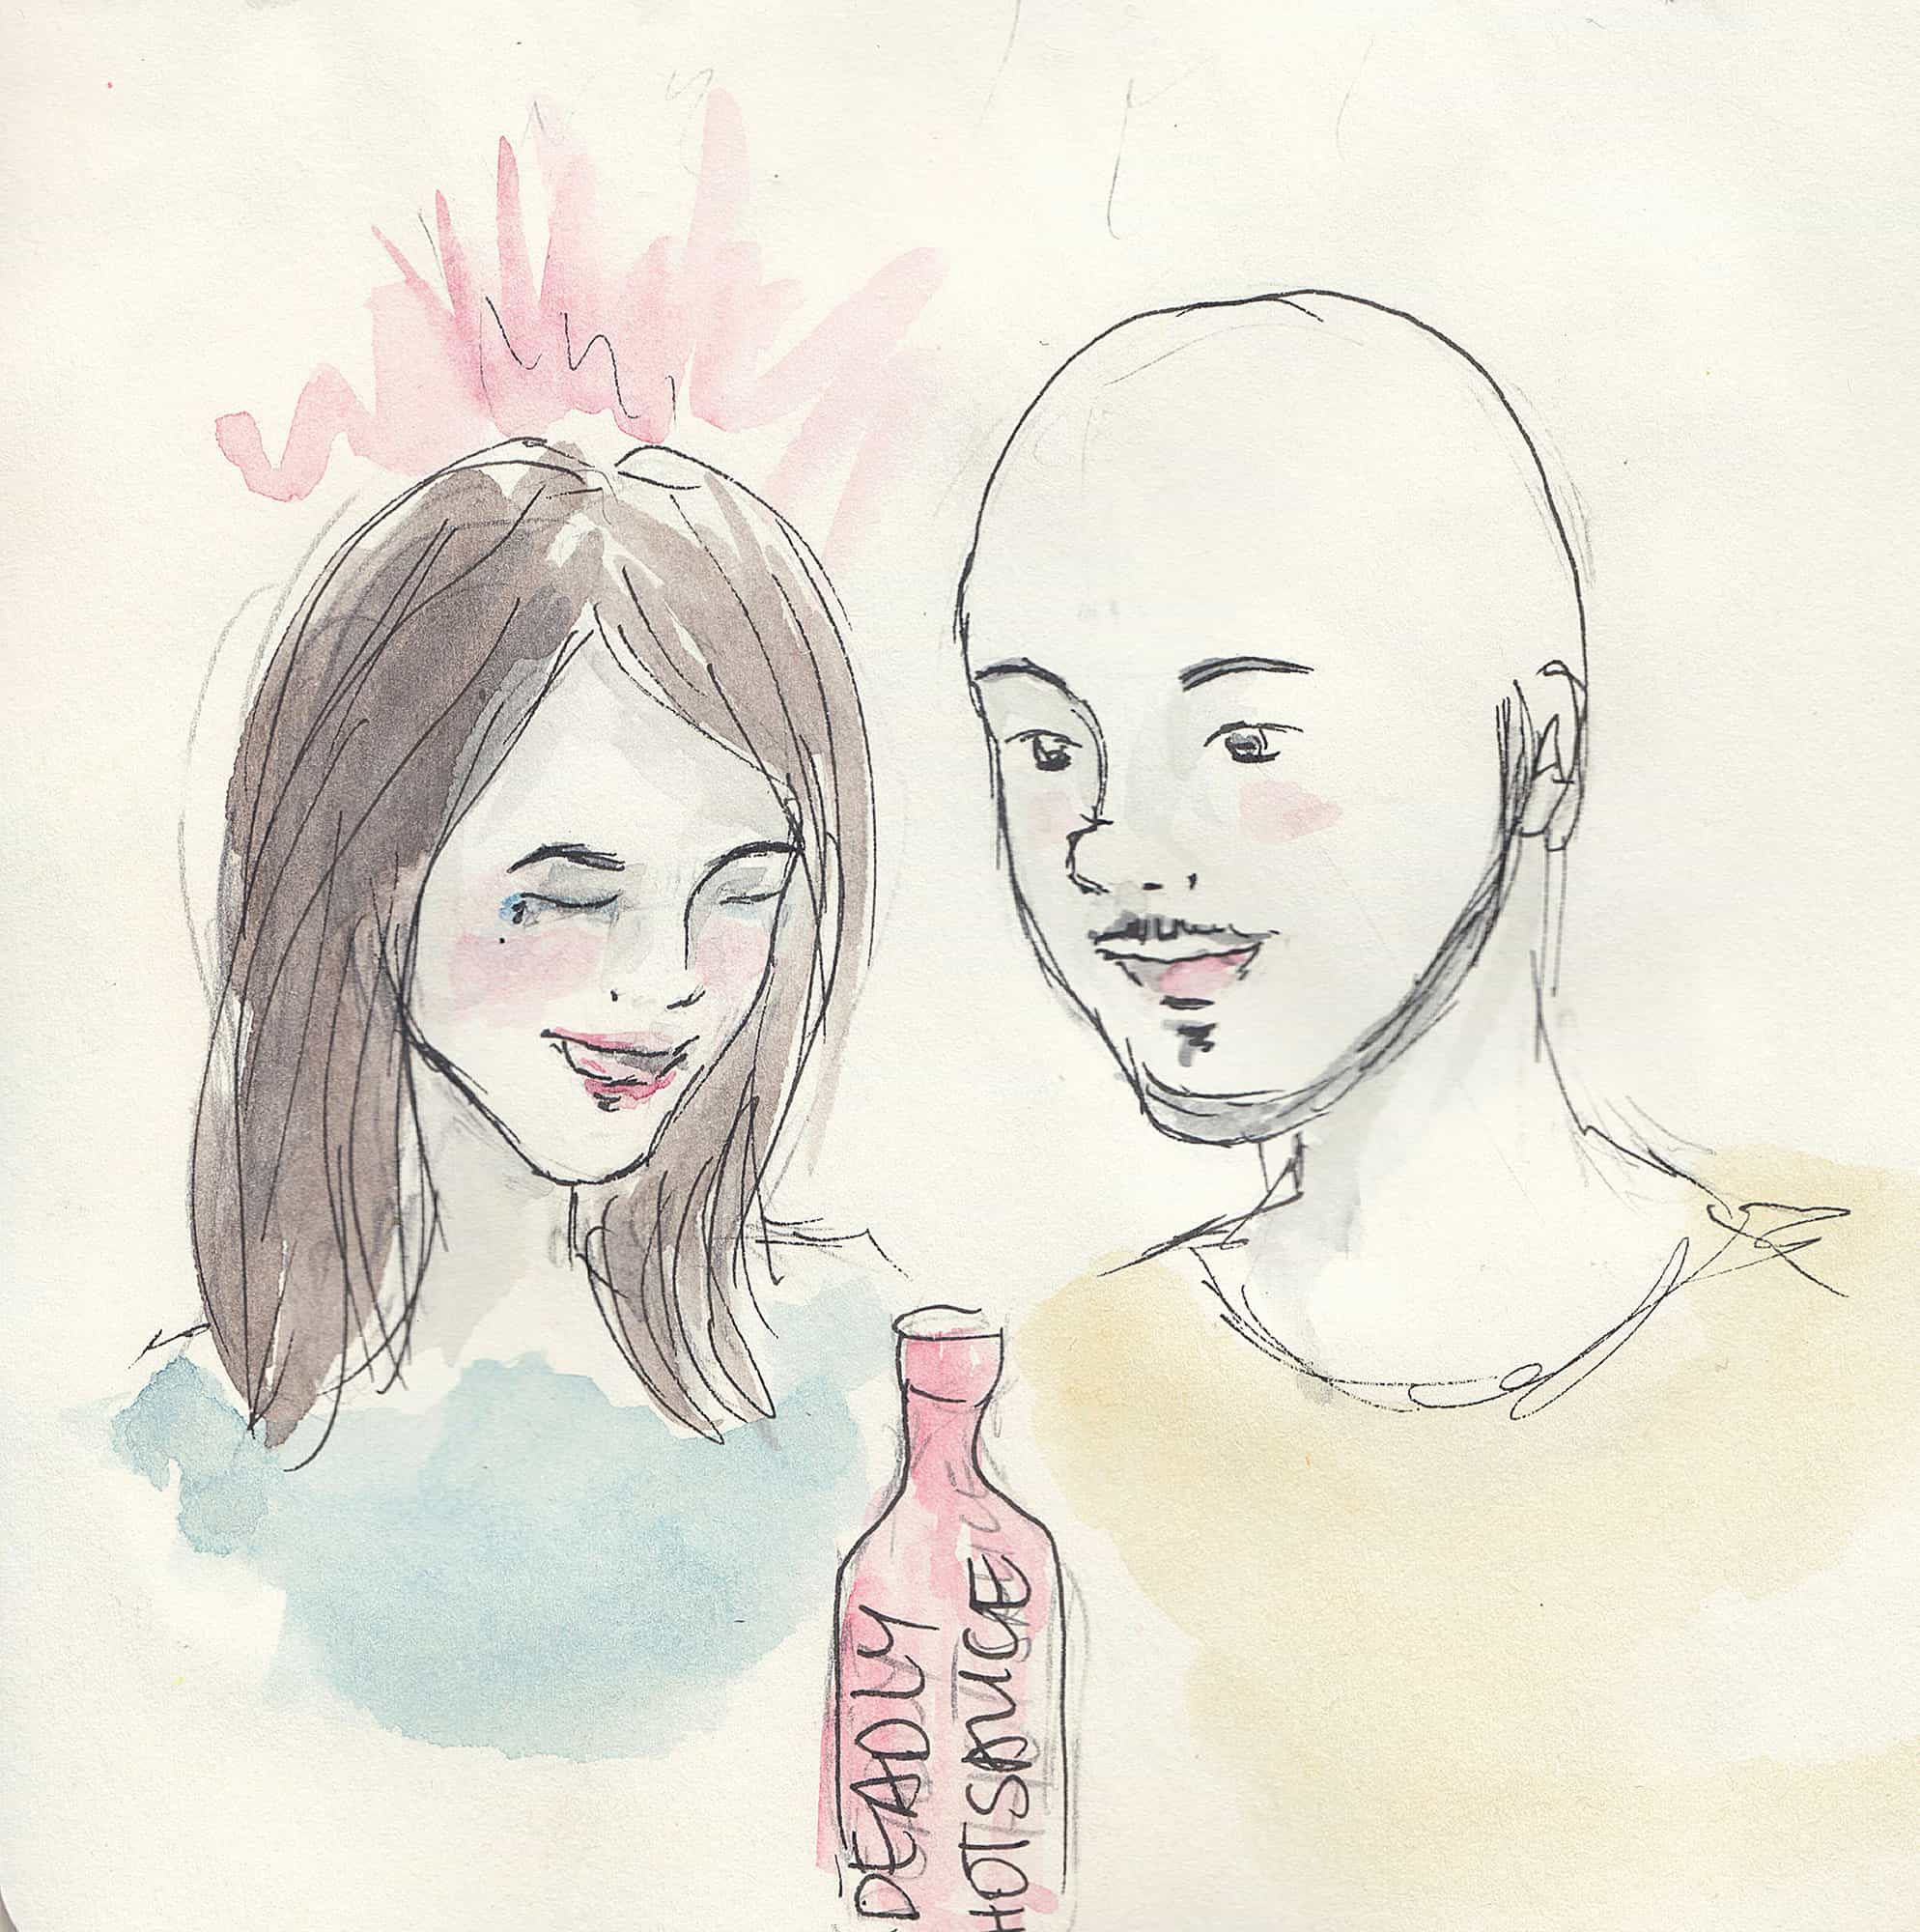 DEADLY
HOT SAUCE